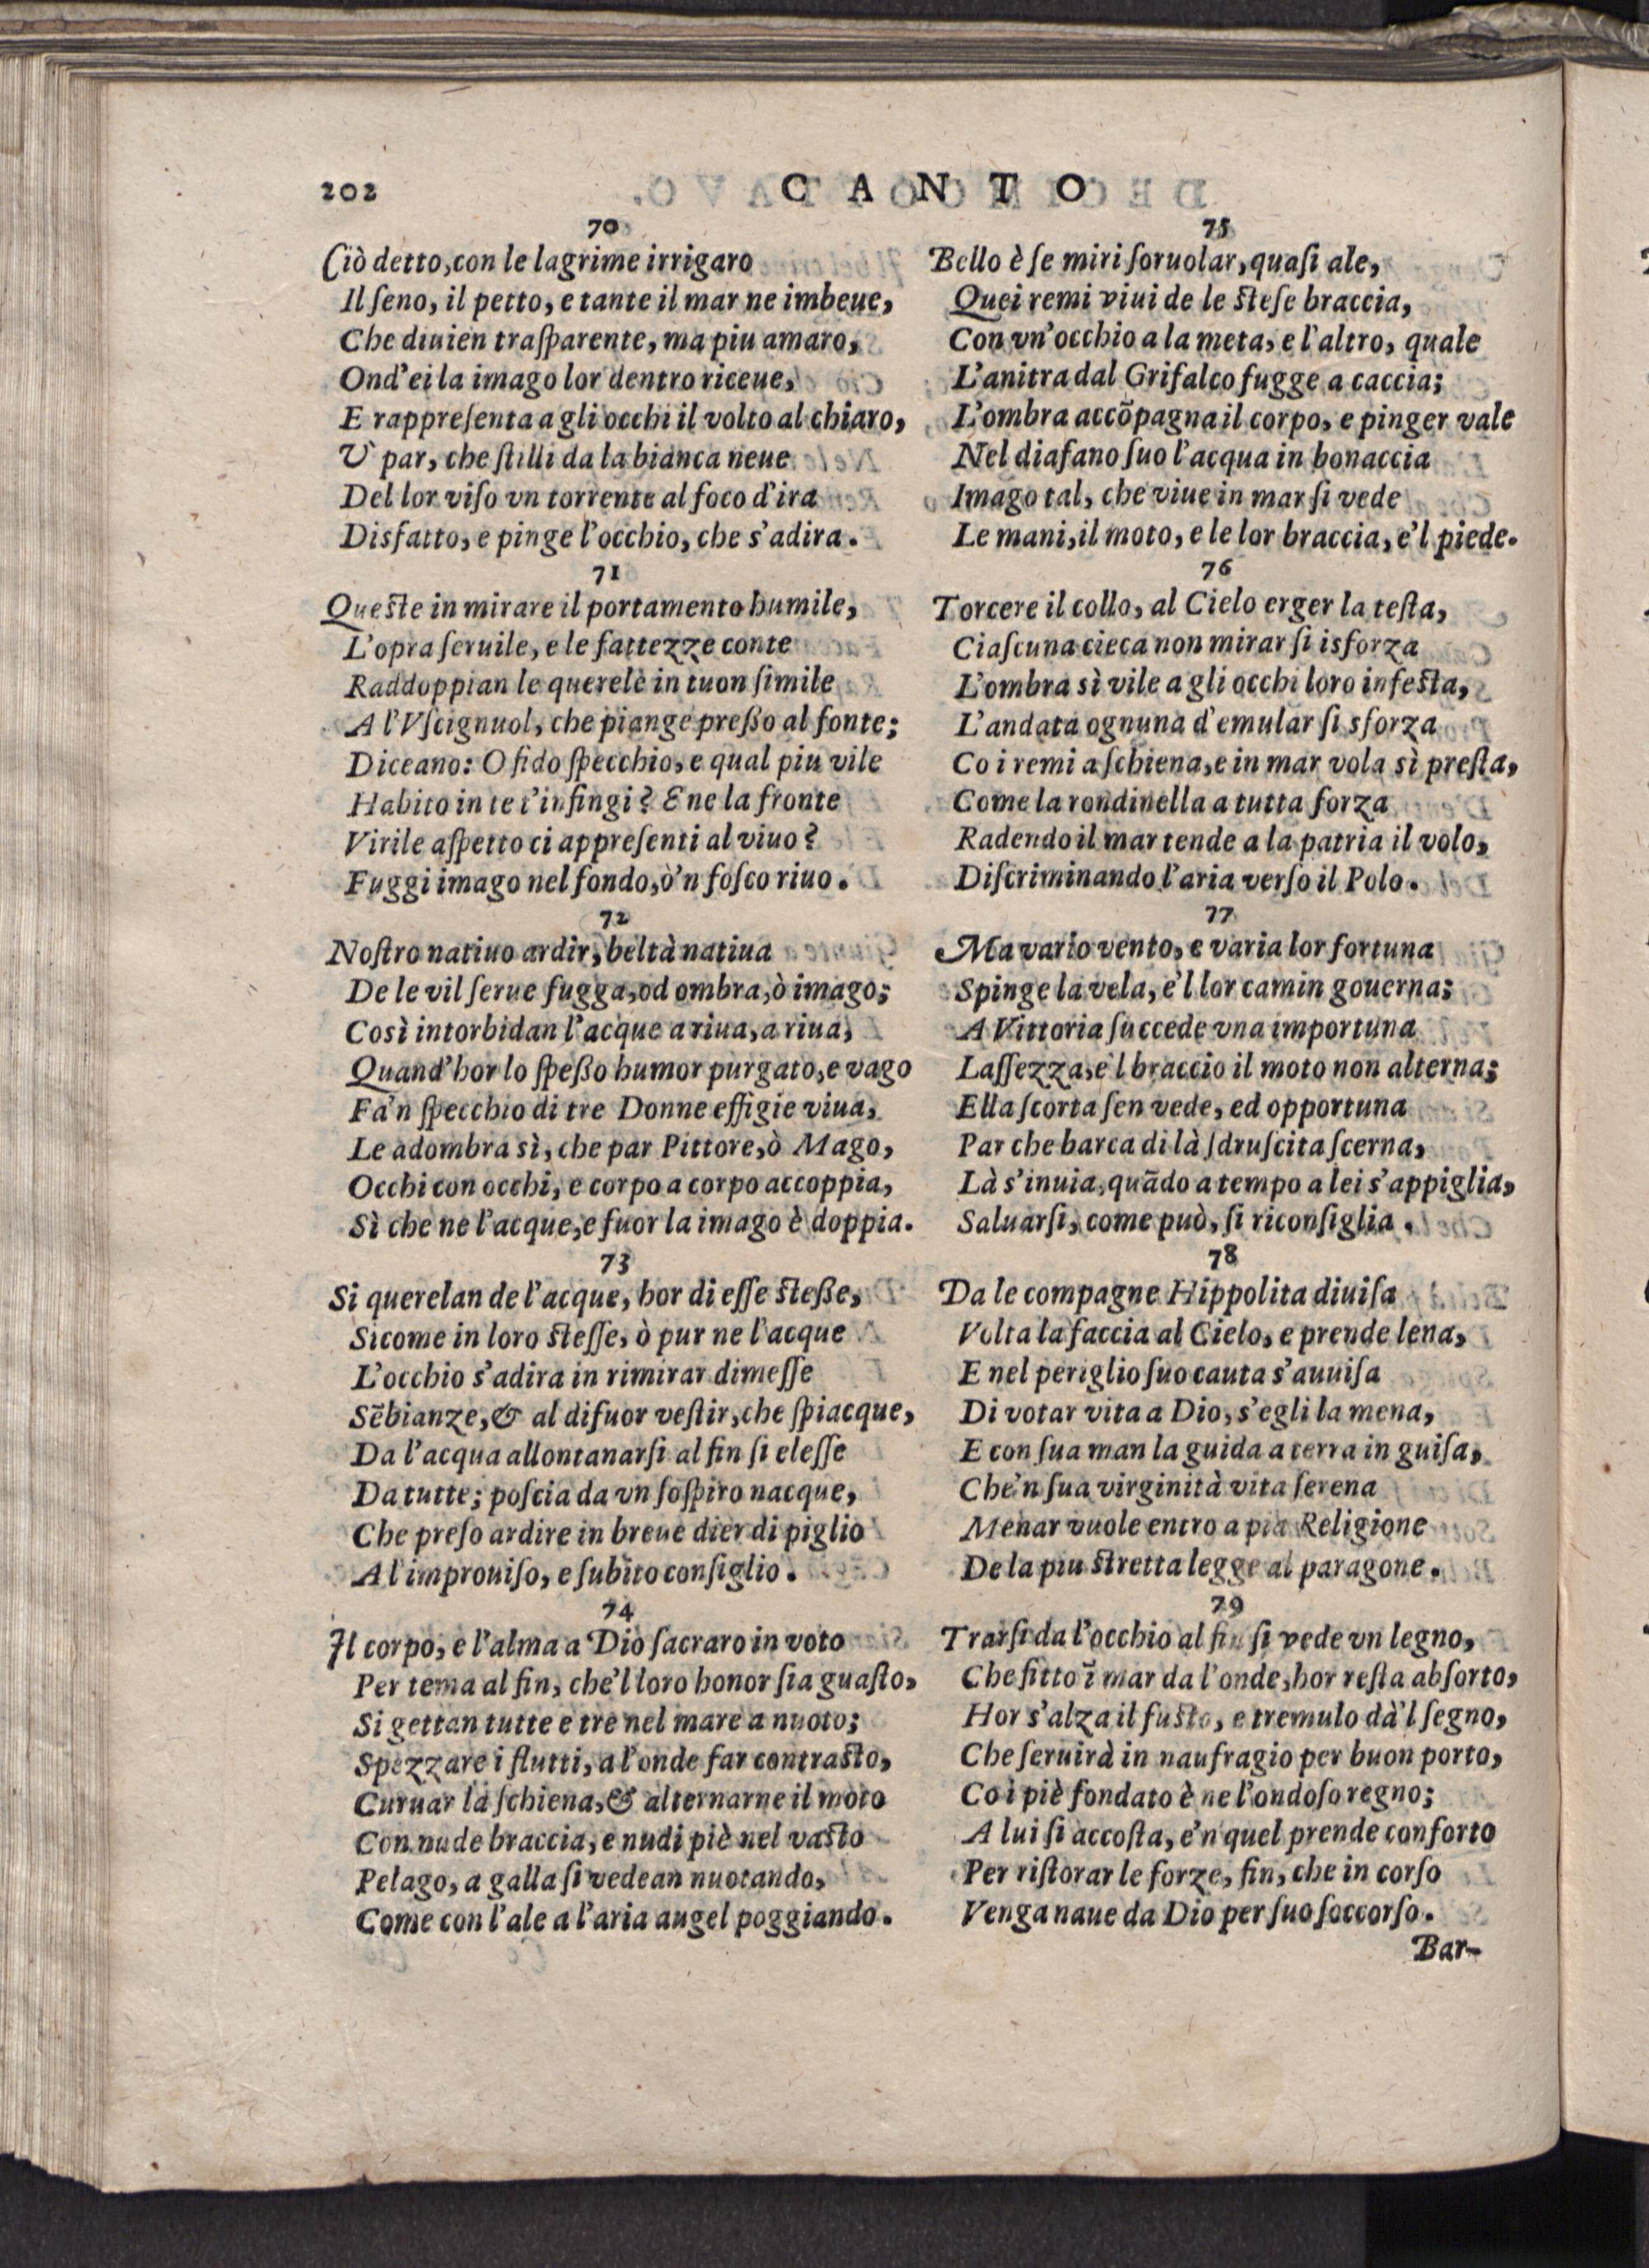 202
CANTO
70
Ciò detto, con le lagrime irrigaro
Il ſeno, il petto, e tante il mar ne imbeue,
Che diuien traſparente, ma piu amaro,
Ond'ei la imago lor dentro riceue,
E rappreſenta a gli occhi il volto al chiaro,
V' par, che ſtilli da la bianca neue
Del lor viſo vn torrente al foco d'ira
Disfatto, e pinge l'occhio, che s'adira.
71
Queſte in mirare il portamento humile,
L'opra ſeruile, e le fattezze conte
Raddoppian le querele in tuon ſimile
A l'Vſcignuol, che piange preßo al fonte;
Diceano: O fido ſpecchio, e qual piu vile
Habito in te t'infingi? E ne la fronte
Virile aſpetto ci appreſenti al viuo?
Fuggi imago nel fondo, ò'n foſco riuo.
72
Noſtro natiuo ardir, beltà natiua
De le vil ſerue fugga, od ombra, ò imago;
Così intorbidan l'acque a riua, a riua,
Quand'hor lo ſpeßo humor purgato, e vago
Fa'n ſpecchio di tre Donne effigie viua,
Le adombra sì, che par Pittore, ò Mago,
Occhi con occhi, e corpo a corpo accoppia,
Sì che ne l'acque, e fuor la imago è doppia.
73
Si querelan de l'acque, hor di eſſe ſteße,
Sicome in loro ſteſſe, ò pur ne l'acque
L'occhio s'adira in rimirar dimeſſe
Sẽbianze, & al difuor veſtir, che ſpiacque,
Da l'acqua allontanarſi al fin ſi eleſſe
Da tutte; poſcia da vn ſoſpiro nacque,
Che preſo ardire in breue dier di piglio
A l'improuiſo, e ſubito conſiglio.
74
Il corpo, e l'alma a Dio ſacraro in voto
Per tema al fin, che'l loro honor ſia guaſto,
Si gettan tutte e tre nel mare a nuoto;
Spezzare i flutti, a l'onde far contraſto,
Curuar la ſchiena, & alternarne il moto
Con nude braccia, e nudi piè nel vaſto
Pelago, a galla ſi vedean nuotando,
Come con l'ale a l'aria augel poggiando.
75
Bello è ſe miri ſoruolar, quaſi ale,
Quei remi viui de le ſteſe braccia,
Con vn'occhio a la meta, e l'altro, quale
L'anitra dal Grifalco fugge a caccia;
L'ombra accõpagna il corpo, e pinger vale
Nel diafano ſuo l'acqua in bonaccia
Imago tal, che viue in mar ſi vede
Le mani, il moto, e le lor braccia, e'l piede.
76
Torcere il collo, al Cielo erger la teſta,
Ciaſcuna cieca non mirar ſi isforza
L'ombra sì vile a gli occhi loro infeſta,
L'andata ognuna d'emular ſi sforza
Co i remi a ſchiena, e in mar vola sì preſta,
Come la rondinella a tutta forza
Radendo il mar tende a la patria il volo,
Diſcriminando l'aria verſo il Polo.
77
Ma vario vento, e varia lor fortuna
Spinge la vela, e'l lor camin gouerna;
A Vittoria ſuccede vna importuna
Laſſezza, e'l braccio il moto non alterna;
Ella ſcorta ſen vede, ed opportuna
Par che barca di là ſdruſcita ſcerna,
Là s'inuia, quãdo a tempo a lei s'appiglia,
Saluarſi, come può, ſi riconſiglia.
78
Da le compagne Hippolita diuiſa
Volta la faccia al Cielo, e prende lena,
E nel periglio ſuo cauta s'auuiſa
Di votar vita a Dio, s'egli la mena,
E con ſua man la guida a terra in guiſa,
Che'n ſua virginità vita ſerena
Menar vuole entro a pia Religione
De la piu ſtretta legge al paragone.
79
Trarſi da l'occhio al fin ſi vede vn legno,
Che fitto ĩ mar da l'onde, hor reſta abſorto,
Hor s'alza il fuſto, e tremulo dà'l ſegno,
Che ſeruirà in naufragio per buon porto,
Co i piè fondato è ne l'ondoſo regno;
A lui ſi accoſta, e'n quel prende conforto
Per riſtorar le forze, fin, che in corſo
Venga naue da Dio per ſuo ſoccorſo.
Bar-